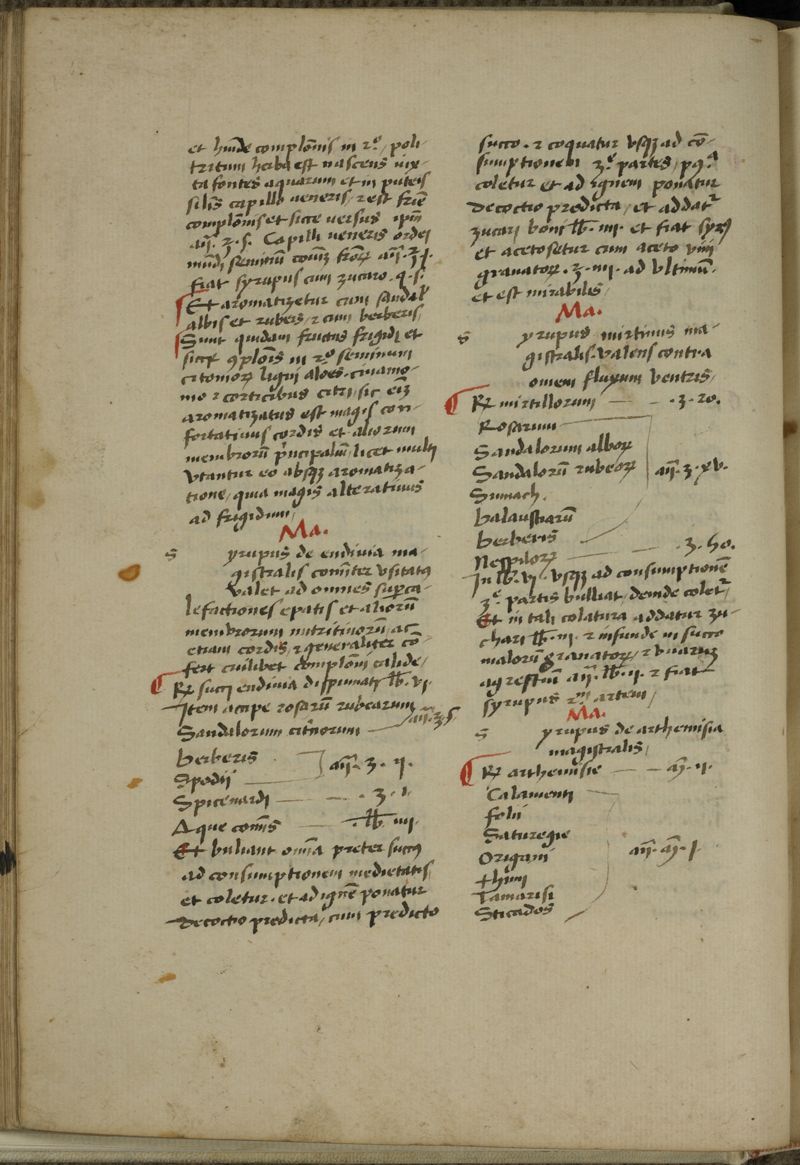 et humide complõnis in 2º, poli-
tritum herba est nascens iux-
ta fontes aquarum et in puteis
silis capillo ueneris, 2 est
complõnis et sicce uersus
añ. ʒ. s. Capilli ueneris ordei
mundi seminũ
fiat syrupus cum zucaro. q. s.
Et aromatizetur cum sandal
albis et rubeis, 2 cum berberis,
Sunt quidam fructus frigidi et
sicce 9plõnis in 2º seminum
citoniorꝝ ligni aloes. cinamo-
mo 2 corticibus citri, sic eiꝫ
aromatizatus est magis con-
fortatiuus cordis et aliorum
membrorũ principaliũ, licet multi
vtantur eo absqꝫ aromatiza-
tione, qua magis alteratiuus
ad frigidum,
Ma.
s yrupus de endiuia ma-
gistralis comiter vsitatꝰ
valet ad omnes superca-
lefactiones epatis et aliorũ
membrorum nutritiuorũ, ac
etiam cordis, 2 generaliter cõ-
fert cuilibet complõni calide,
℞ succi endiuia dispumati lb. vj.
Item accipe rosarũ rubearum
Sandalorum citrinorum añ. ʒ. s.
Berberis
Spodij añ. ʒ. ij.
Spicenardi ʒ. j.
Aque comĩs lb. iiij.
Et buliant omĩa preter succũ
ad consumptionem medietatis
et coletur. et ad ignẽ ponatur
decoctio predicta, cum predicto
succo. 2 coquatur vsqꝫ ad cõ-
sumptionem 3ᵉ partis,
coletur et ad ignem ponatur
decoctio predicta, et addatr
zucari boni lb. iiij. et fiat syrꝰ
et acetosetur cum aceto vini
granatorꝝ. ʒ. iiij. ad vltimũ.
et est mirabilis,
Ma.
s yrupus mirtinus ma-
gistralis valens contra
omem fluxum ventris,
℞ mirtillorum ʒ. 20.
Rosarum
Sandalorum alborꝝ
Sandalorũ rubeorꝝ añ. ʒ. xv.
Sumach.
balaustiarũ
berberis
Nespilorꝝ ʒ. 50.
In lb. vj. vsqꝫ ad consumptionẽ
3ᵉ partis bulliat, deinde coletr
Et in tali colatura addatur zu-
chari lb. iij. 2 infunde in succo
malorũ granatorꝝ, 2
agrestiũ añ. lb. ij. 2 fiat
syrupus artem,
Ma.
s yrupus de arthemisia
magistralis,
℞ arthemisie ij.
Calamenti
folij
Saturegie
Origani
thimi
Tamarisi
Sticados